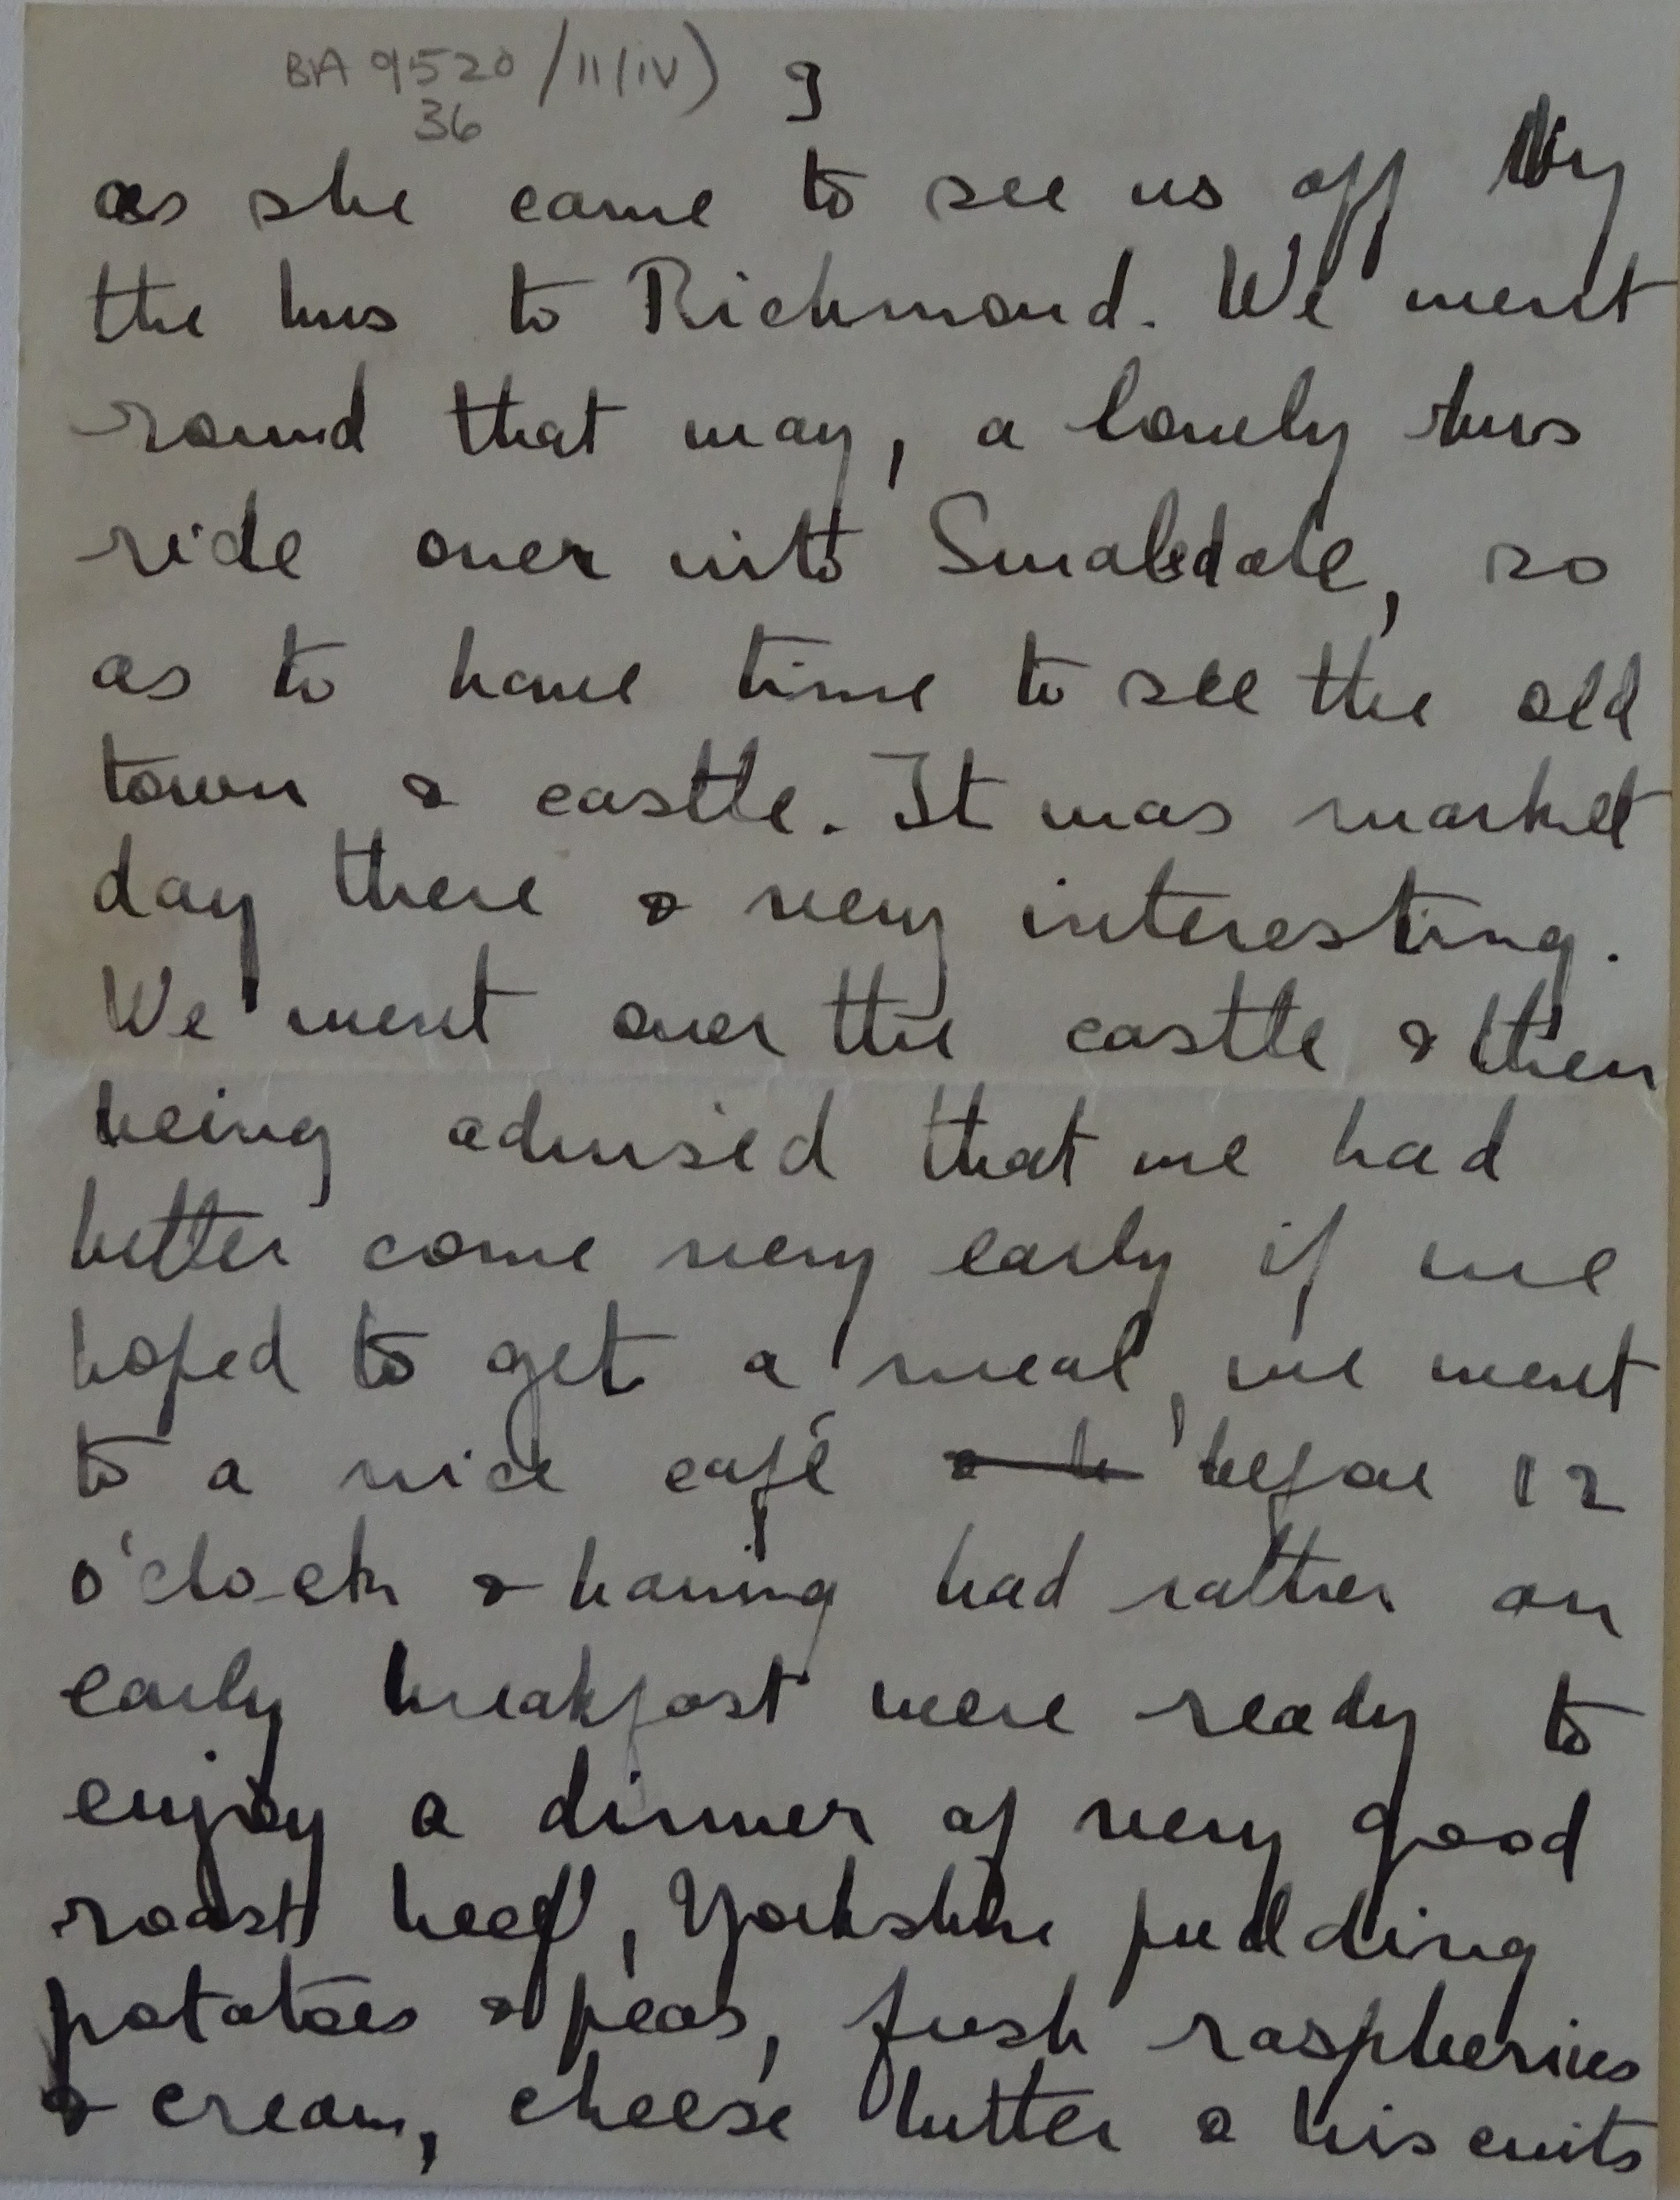 BA 9520/11(iv) 3
36
as she came to see us off by
the bus to Richmond. We went
round that way, a lonely bus
ride over into Swaledale, so
as to have time to see the old
town & castle. It was market
day there & very interesting.
We went over the castle & then
being advised that we had
better come very early if we
hoped to get a meal, we went
to a nice café before 12
o'clock & having had rather an
early breakfast were ready to
enjoy a dinner of very good
roast beef, Yorkshire pudding
potatoes & peas, fresh raspberries
& cream, cheese butter & biscuits